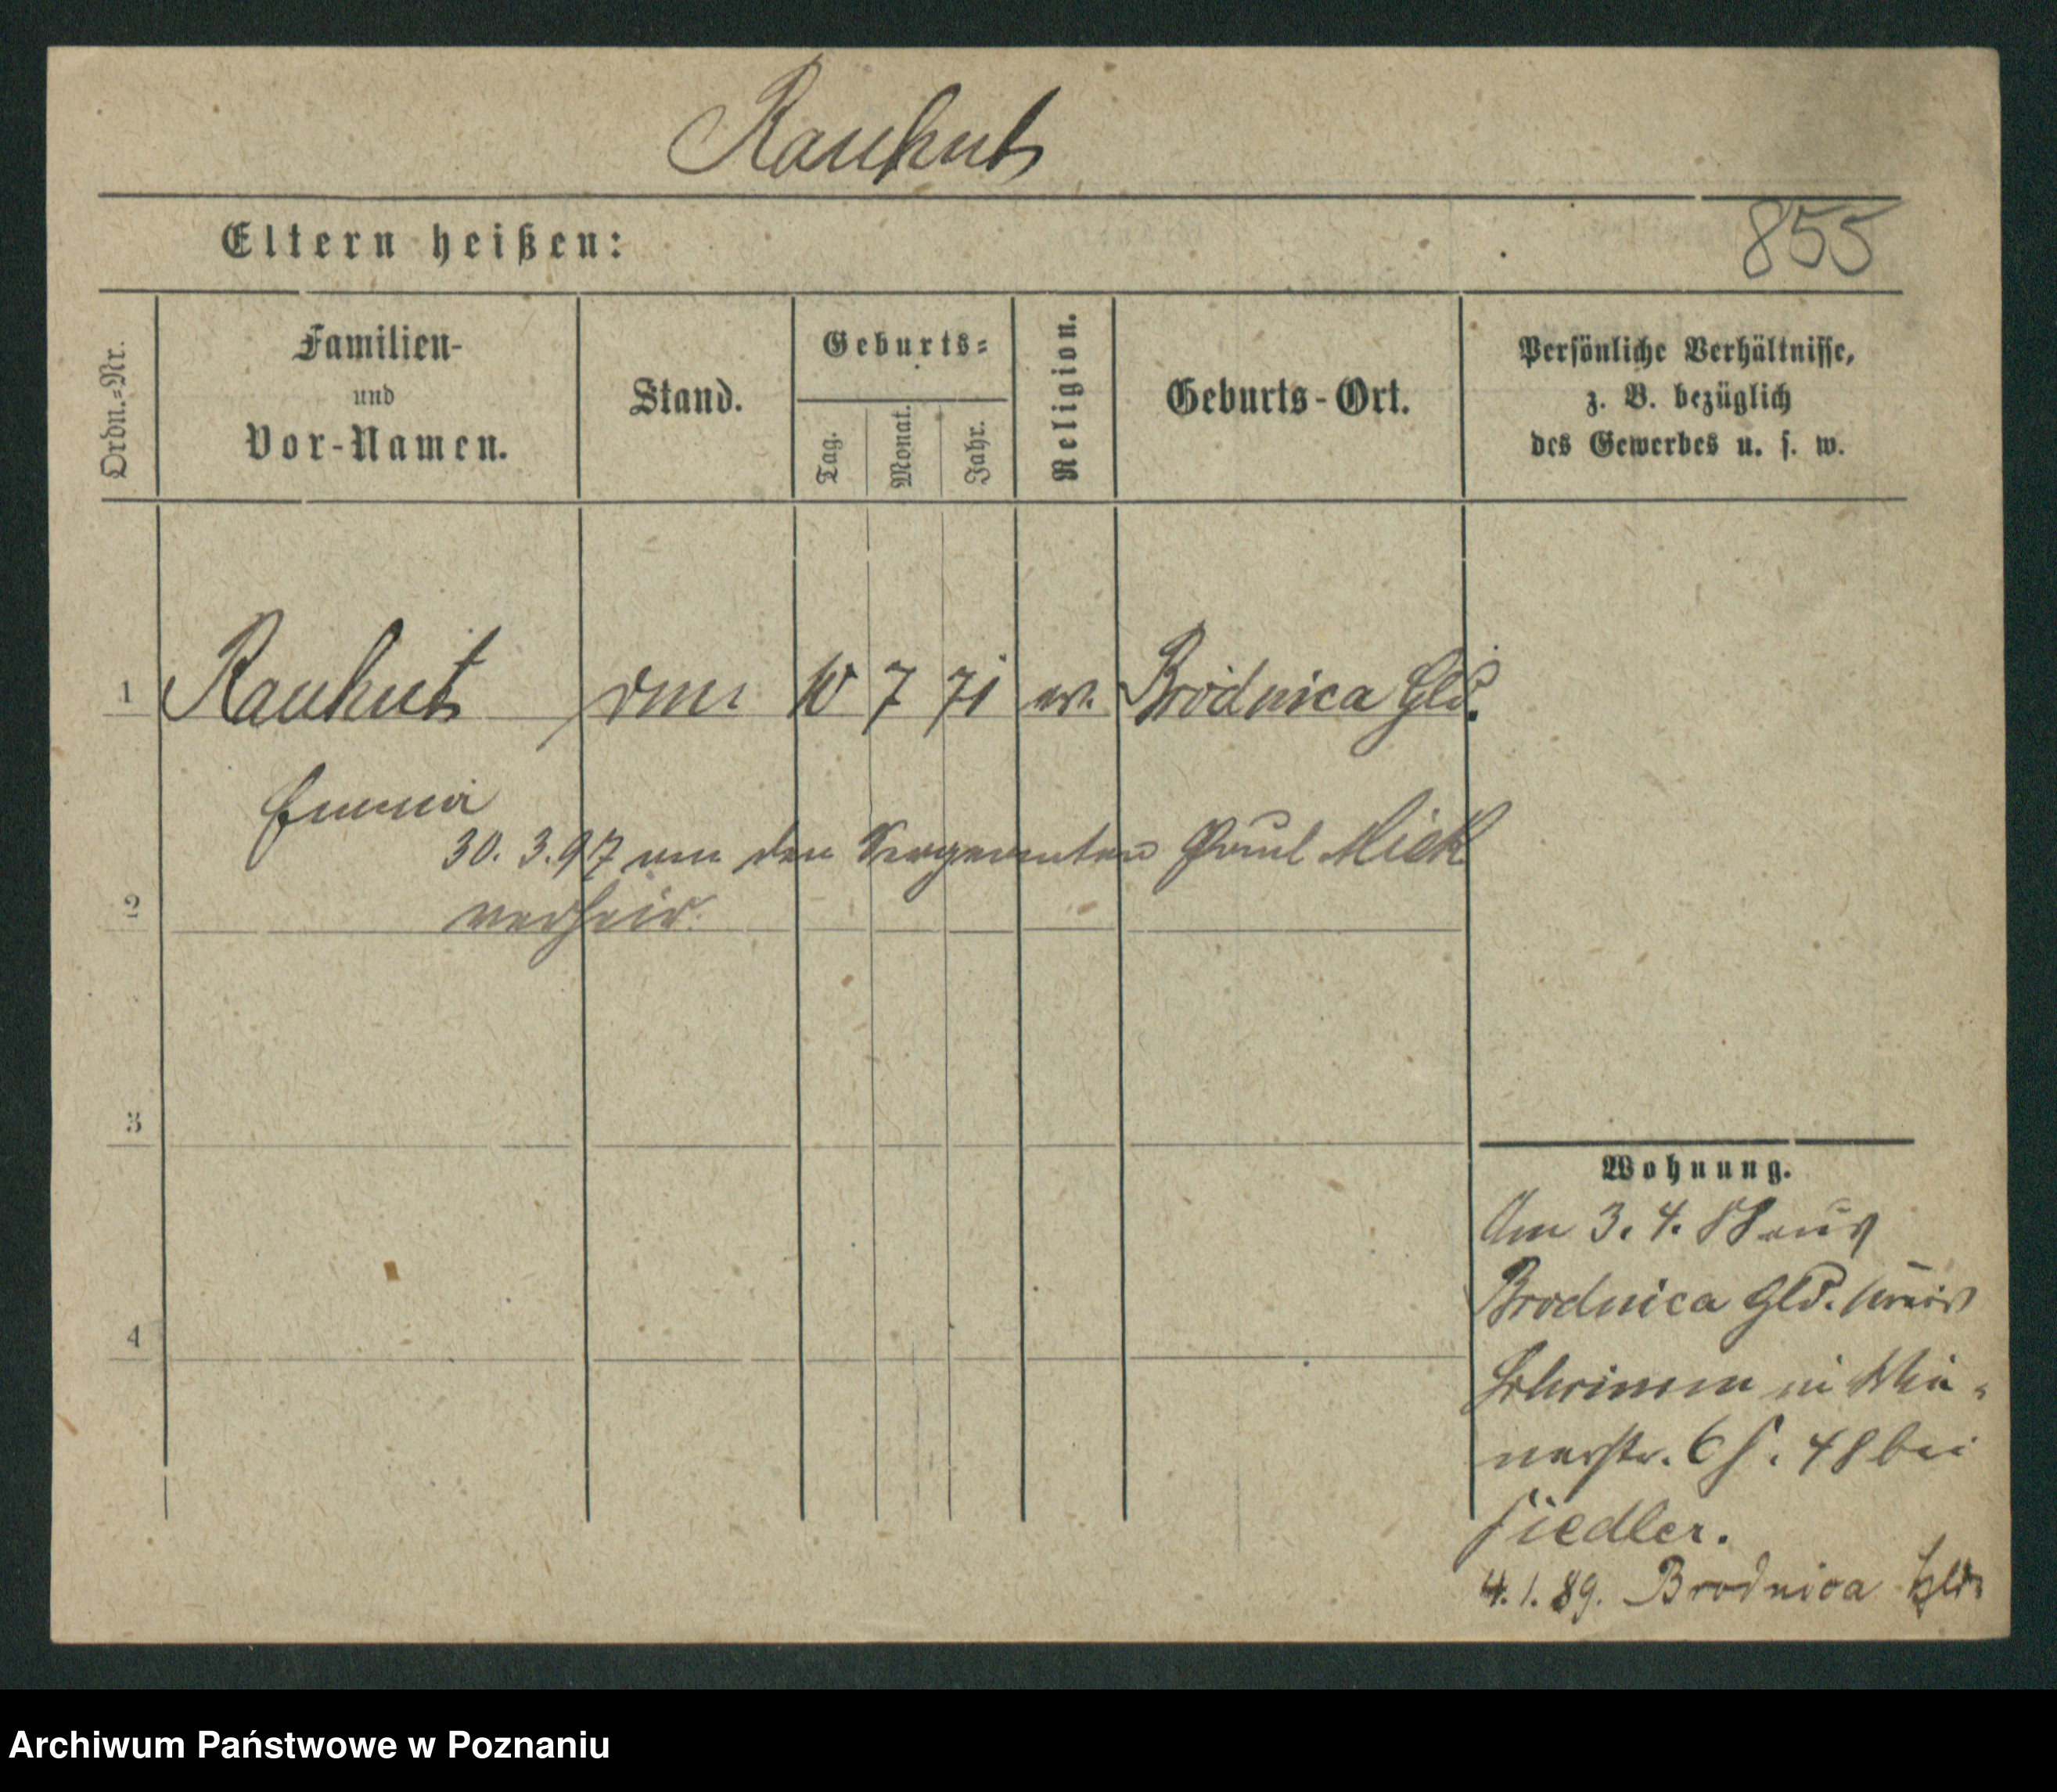 Rauhut
855
Eltern heißen:
Ordn.=Nr.
Familien-
und
Vor-Namen.
Stand.
Geburts=
Tag.
Monat.
Jahr.
Religion.
Geburts-Ort.
Persönliche Verhältnisse,
z. B. bezüglich
des Gewerbes u. s. w.
1 Rauhut 10 7 71 ev. Brodnica Hld.
Emma
30. 3. 97 den Sergeanten Paul Mick
2 verheir.
3
4
Wohnung.
Am 3. 4. 88 aus
Brodnica Hld. Kreis
Schrimm in
6 48 bei
Fiedler.
4. 1. 89. Brodnica Hld.
Archiwum Państwowe w Poznaniu